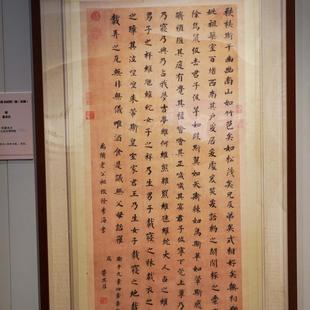 秩秩斯干幽幽南山如竹苞矣如松茂矣兄及弟矣式相好矣無相猶矣似續
妣祖築室百堵西南其戶爰居爰處爰笑爰語約之閣閣椓之橐橐風雨攸
除鳥鼠攸去君子攸芋如跂斯翼如矢斯棘如鳥斯革如翬斯飛君子攸
躋殖殖其庭有覺其楹噲噲其正噦噦其冥君子攸寧下莞上簟乃安斯寢
乃寢乃興乃占我夢吉夢維何維熊維羆維虺維蛇大人占之維熊維羆
男子之祥維虺維蛇女子之祥乃生男子載寢之牀載衣之裳載弄
之璋其泣喤喤朱芾斯皇室家君王乃生女子載寢之地載衣之裼
載弄之瓦無非無儀唯酒食是議無父母詒罹
斯干九章四章章
老公祖
書
董其昌